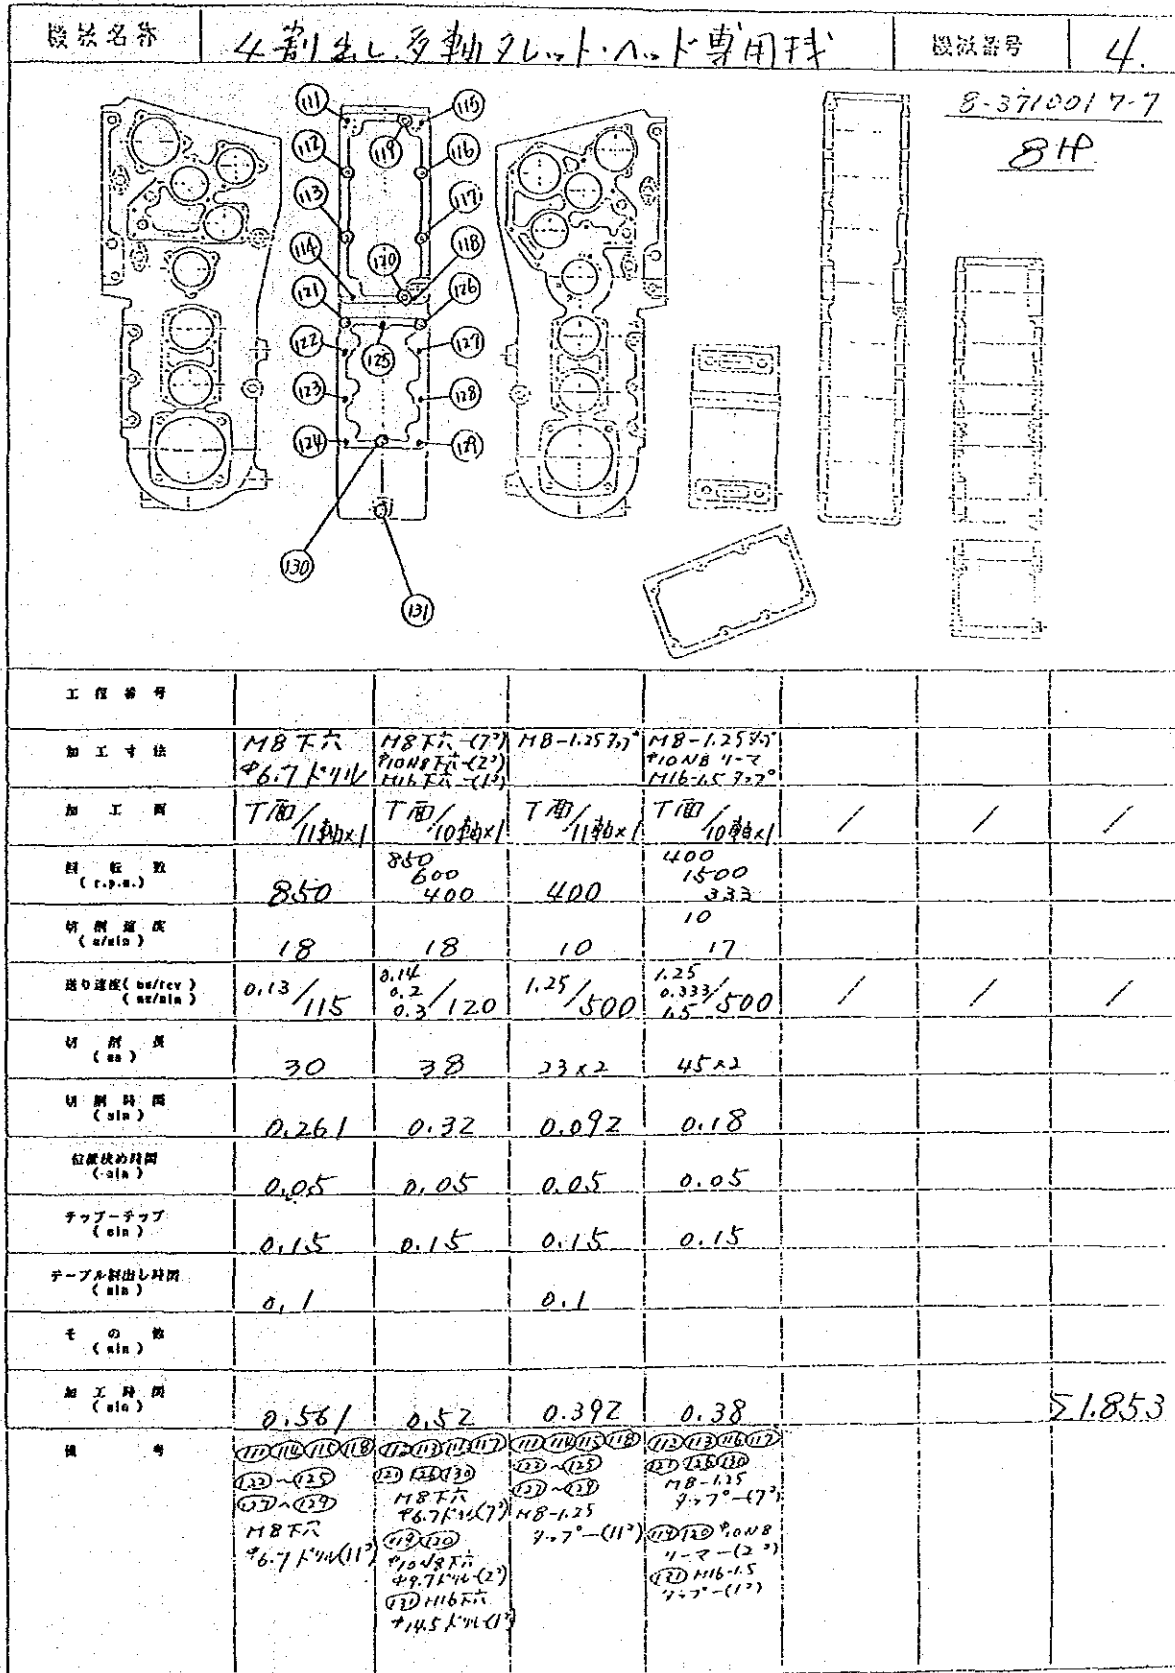 機械名称 4割出し多軸タレット・ヘッド専用機 機械番号 4.
8-3710017-7
8HP
111 115
112 119 116
113 117
114 120 118
121 126
122 125 127
123 128
124 129
130
131
工程番号
加工寸法 M8下穴 φ6.7ドリル
M8下穴-(7ヶ) φ10N8下穴-(2ヶ) M16下穴-(1ヶ)
M8-1.25タップ
M8-1.25タップ φ10N8リーマ M16-1.5タップ
加工面 T面/11軸×1 T面/10軸×1 T面/11軸×1 T面/10軸×1 / / /
回転数 (r.p.m.) 850 850 600 400 400 400 1500 333
切削速度 (m/min) 18 18 10 10 17
送り速度(mm/rev) (mm/min) 0.13/115 0.14 0.2 0.3/120 1.25/500 1.25 0.333 1.5/500 / / /
切削長 (mm) 30 38 23×2 45×2
切削時間 (min) 0.261 0.32 0.092 0.18
位置決め時間 (min) 0.05 0.05 0.05 0.05
チップーチップ (min) 0.15 0.15 0.15 0.15
テーブル割出し時間 (min) 0.1 0.1
その他 (min)
加工時間 (min) 0.561 0.52 0.392 0.38 Σ1.853
備考
111 114 115 118
122~125
127~129
M8下穴
φ6.7ドリル(11ヶ)
112 113 116 117
121 126 130
M8下穴
φ6.7ドリル(7ヶ)
119 120
φ10N8下穴
φ9.7ドリル-(2ヶ)
M16下穴
φ14.5ドリル-(1ヶ)
111 114 115 118
122~125
M8-1.25
タップ-(11ヶ)
112 113 116 117
121 126 130
M8-1.25
タップ-(7ヶ)
119 120 φ10N8
リーマ-(2ヶ)
M16-1.5
タップ-(1ヶ)